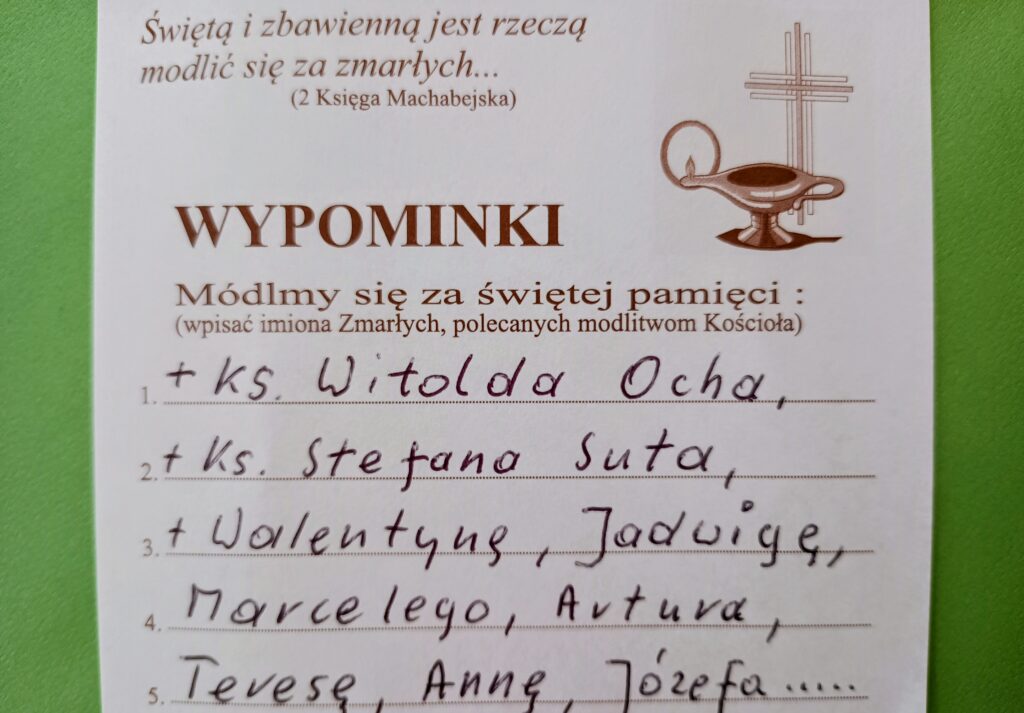 Świętą i zbawienną jest rzeczą
modlić się za zmarłych...
(2 Księga Machabejska)
WYPOMINKI
Módlmy się za świętej pamięci :
(wpisać imiona Zmarłych, polecanych modlitwom Kościoła)
1. + Ks. Witolda Ocha,
2. + Ks. Stefana Suta,
3. + Walentynę, Jadwigę,
4. Marcelego, Artura,
5. Teresę, Annę, Józefa .....